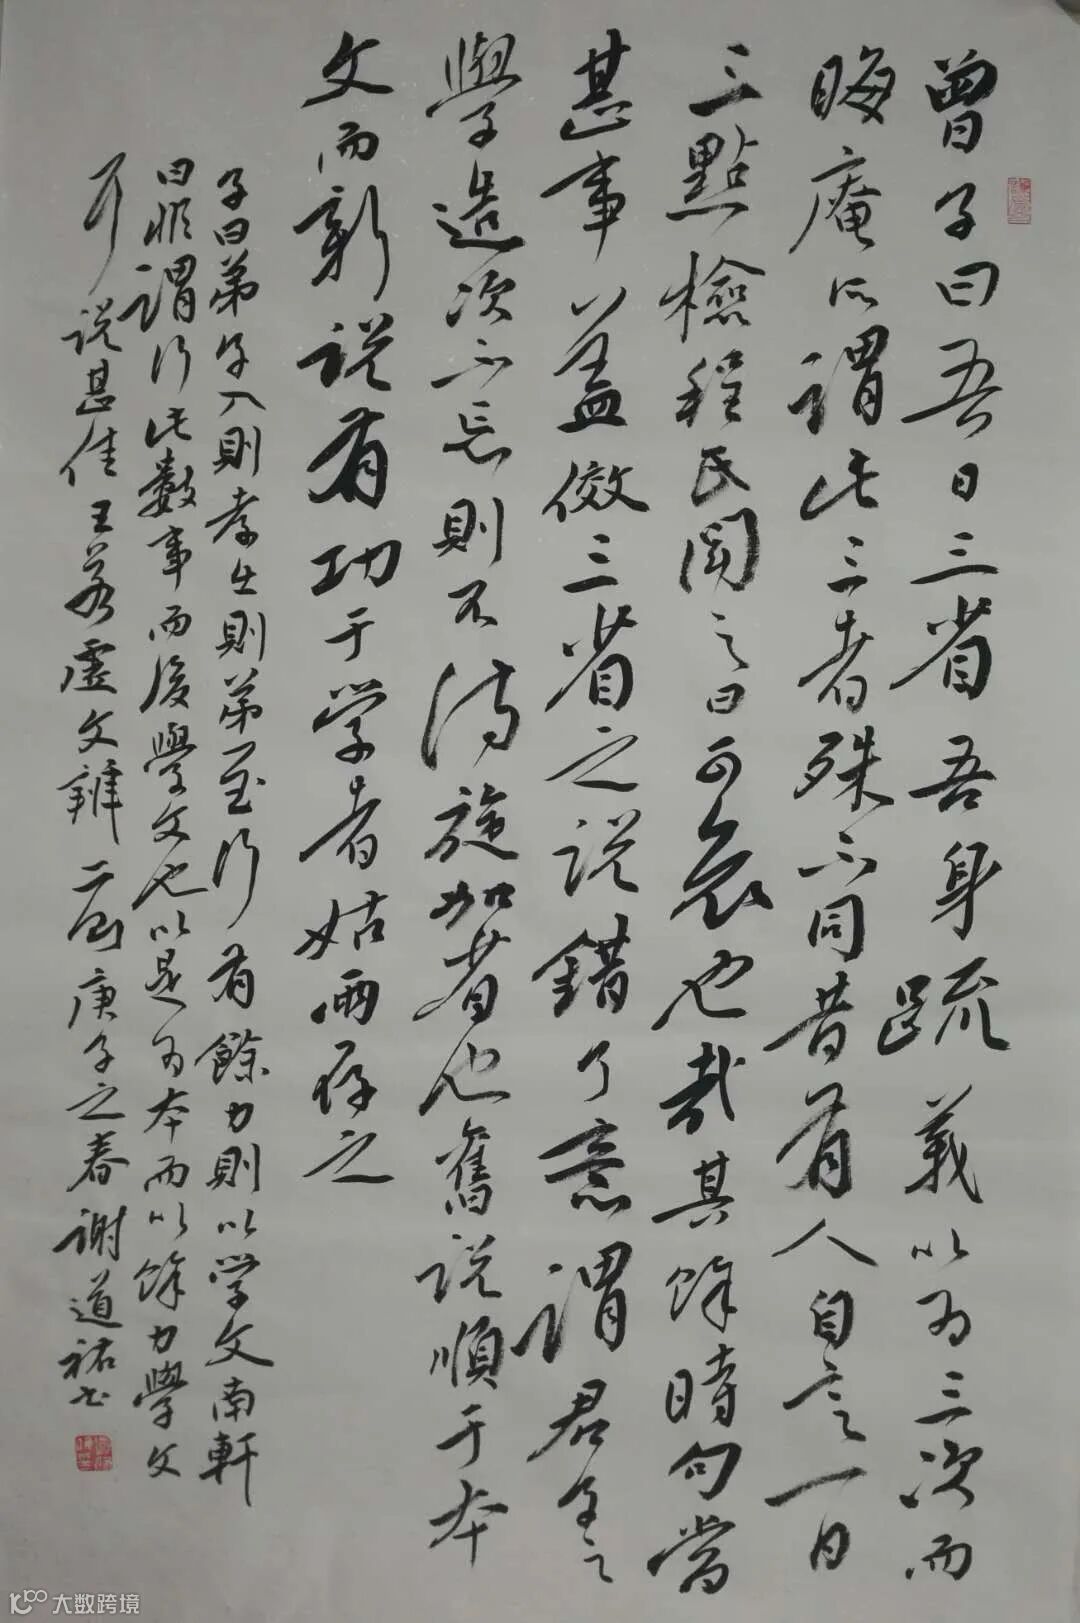 曾子曰吾日三省吾身疏義以为三次而
晦庵所謂此三者殊不同昔有人自言一日
三點檢程氏聞之曰可哀也哉其餘時句當
甚事蓋傚三省之说錯了意謂君子之
學造次不忘則不得施加省也舊说順于本
文而新说有功于学者姑兩存之
子曰弟子入則孝出則弟至行有餘力則以学文南軒
曰非謂行此數事而後學文也以是为本而以餘力學文
耳说甚佳王若虚文辨二則庚子之春谢道祐书
大数跨境